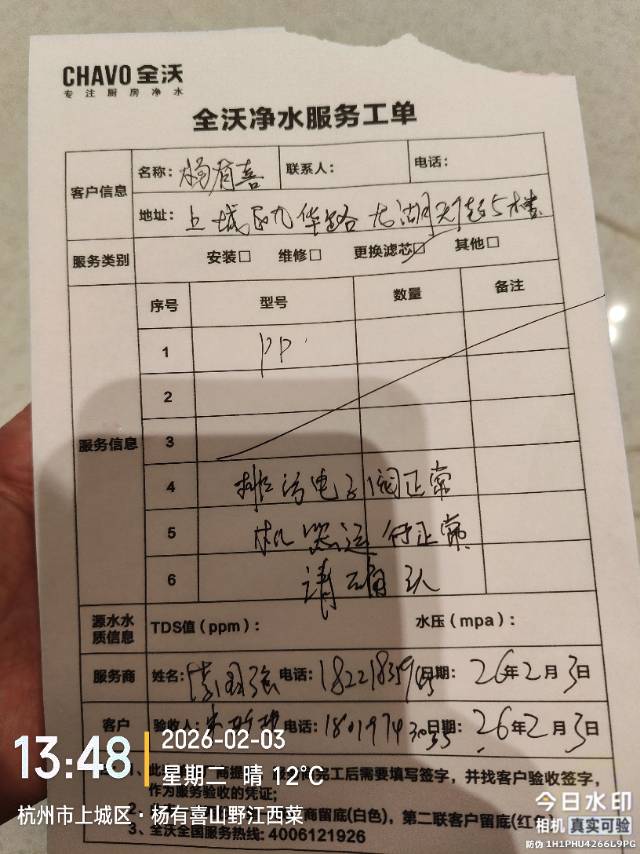 CHAVO 全沃
专注厨房净水
全沃净水服务工单
客户信息
名称：杨有喜 联系人： 电话：
地址：上城区九华路龙湖天街5楼
服务类别 安装□ 维修□ 更换滤芯☑ 其他□
服务信息
序号 型号 数量 备注
1 PP
2
3
4 排污电子阀正常
5 机器运行正常
6 请确认
源水水质信息 TDS值（ppm）： 水压（mpa）：
服务商 姓名： 电话： 日期：26年2月3日
客户 验收人： 电话： 日期：26年2月3日
完工后需要填写签字，并找客户验收签字，
作为服务验收的凭证；
商留底(白色)，第二联客户留底(红色)
3、全沃全国服务热线：4006121926
13:48
2026-02-03
星期二 晴 12℃
杭州市上城区·杨有喜山野江西菜
今日水印
相机 真实可验
防伪 1H1PHU4266L9PG